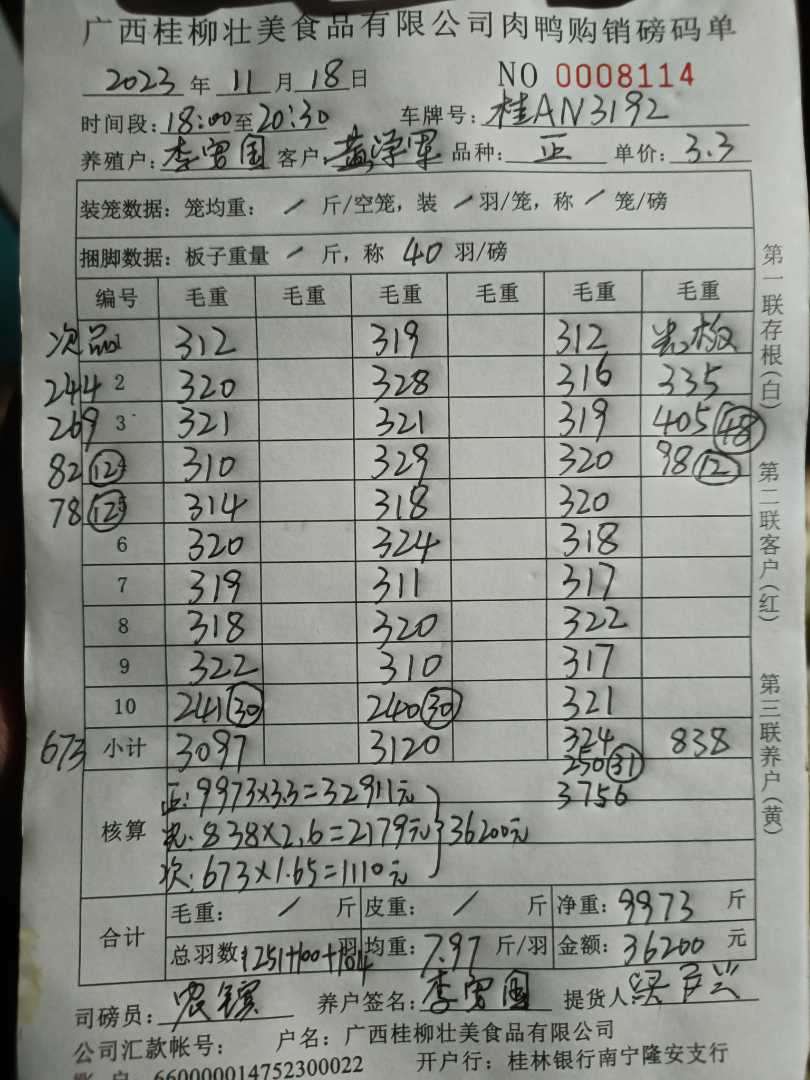 广西桂柳壮美食品有限公司肉鸭购销磅码单
2023年11月18日 NO 0008114
时间段:18:00至20:30 车牌号:桂AN3192
养殖户:李 国 客户:黄泽军 品种:正 单价:3.3
装笼数据:笼均重: / 斤/空笼,装 / 羽/笼,称 / 笼/磅
捆脚数据:板子重量 / 斤,称 40 羽/磅
编号 毛重 毛重 毛重 毛重 毛重 毛重
次品 312 319 312
244 2 320 328 316 335
269 3 321 321 319 405 48
82 12 310 329 320 98 12
78 12 314 318 320
6 320 324 318
7 319 311 317
8 318 320 322
9 322 310 317
10 241 30 240 30 321
673 小计 3097 3120 324 838
250 31
3756
核算
正:9973×3.3=32911元
838×2.6=2179元 36200元
次:673×1.65=1110元
合计 毛重: / 斤 皮重: / 斤 净重:9973 斤
总羽数:1251+100+104羽 均重:7.97 斤/羽 金额:36200 元
司磅员:农 养户签名:李 国 提货人:
公司汇款帐号: 户名:广西桂柳壮美食品有限公司
账户 660000014752300022 开户行:桂林银行南宁隆安支行
第一联存根(白)
第二联客户(红)
第三联养户(黄)